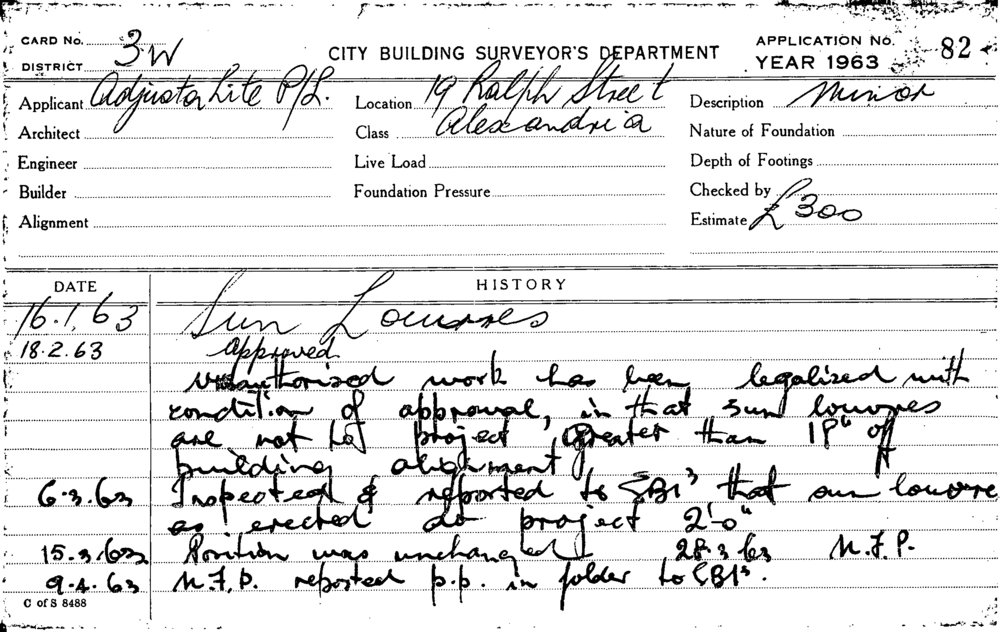 CARD No. 3W
DISTRICT
CITY BUILDING SURVEYOR'S DEPARTMENT
APPLICATION No. 82
YEAR 1963
Applicant Adjusta Lite P/L.
Location 19 Ralph Street
Description Minor
Architect
Class Alexandria
Nature of Foundation
Engineer
Live Load
Depth of Footings
Builder
Foundation Pressure
Checked by
Alignment
Estimate £300
DATE HISTORY
16.1.63 Sun Louvres
18.2.63 approved
Unauthorised work has been legalised with
condition of approval, in that sun louvres
are not to project greater than 18" off
building alignment
6.3.63 Inspected & reported to that sun louvre
as erected do project 2'-0"
15.3.63 Position was unchanged 28.3.63 N.F.P.
9.4.63 N.F.P. reported p.p. in folder to
C of S 8488